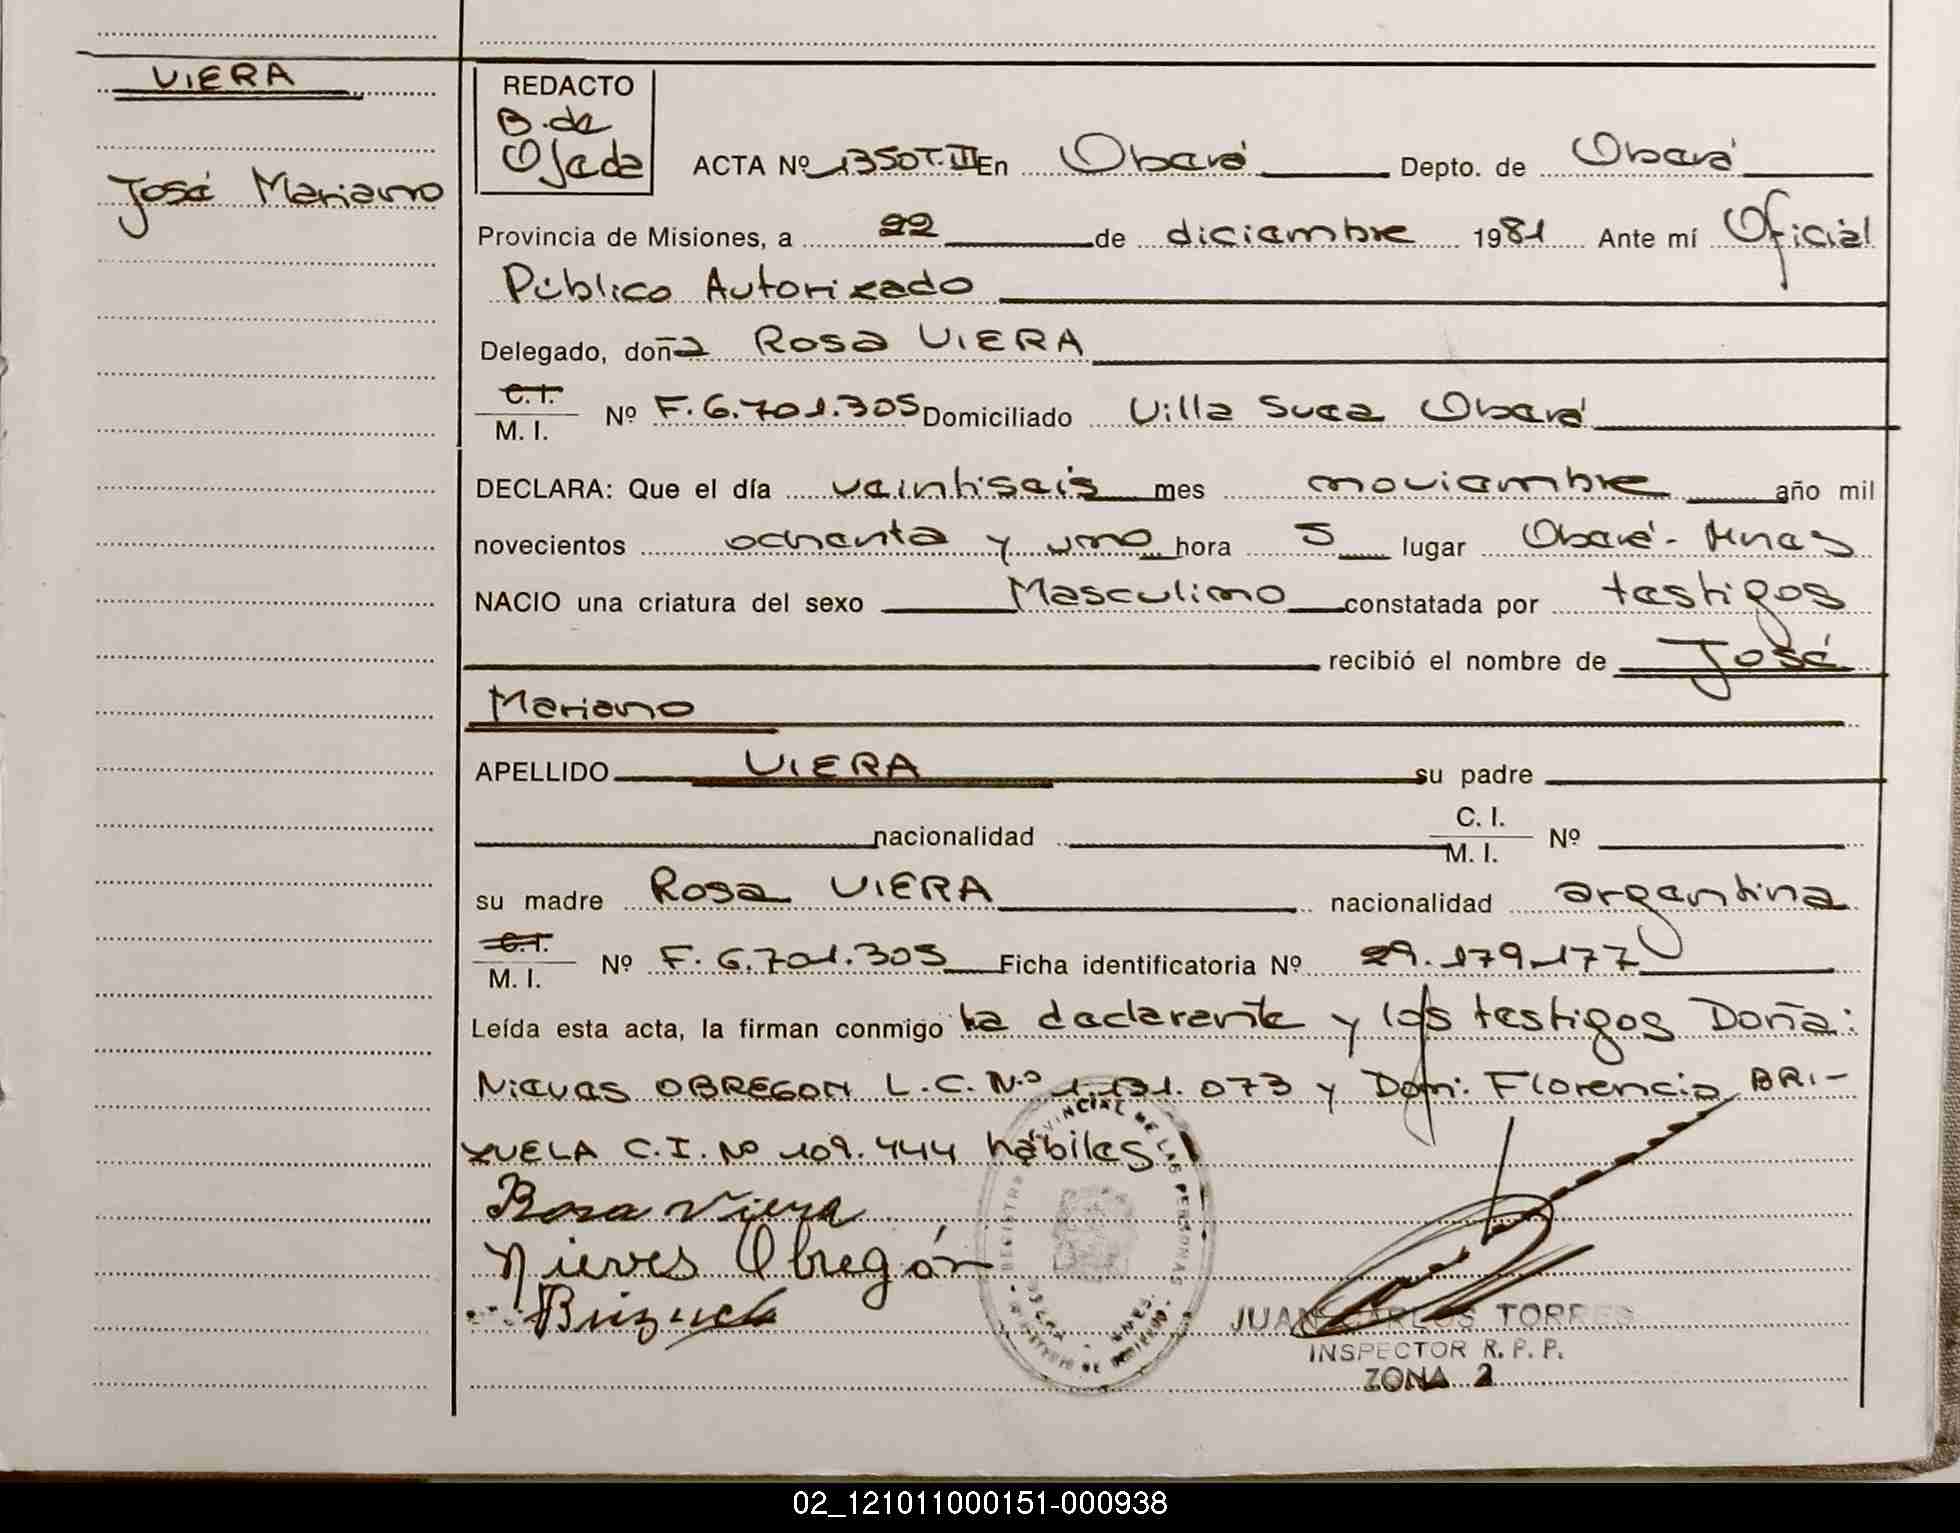 VIERA
José Mariano
REDACTO
B. de
Ojeda
ACTA Nº 1350 T. III En Oberá Depto. de Oberá
Provincia de Misiones, a 22 de diciembre 1981 Ante mí Oficial
Público Autorizado
Delegado, doña Rosa VIERA
C. I.
M. I. Nº F. 6.701.305 Domiciliado Villa Suea Oberá
DECLARA: Que el día veintiseis mes noviembre año mil
novecientos ochenta y uno hora 5 lugar Oberá - Mnes
NACIO una criatura del sexo Masculino constatada por testigos
recibió el nombre de José
Mariano
APELLIDO VIERA su padre
nacionalidad C. I. M. I. Nº
su madre Rosa VIERA nacionalidad argentina
C. I.
M. I. Nº F. 6.701.305 Ficha identificatoria Nº 29.179.177
Leída esta acta, la firman conmigo la declarante y los testigos Doña:
Nieves OBREGON L.C. Nº 1.131.073 y Don: Florencio BRI-
ZUELA C.I. Nº 109.444 hábiles
Rosa Viera
Nieves Obregón
Brizuela
REGISTRO PROVINCIAL DE LAS PERSONAS
MINISTERIO DE GOBIERNO
JUAN CARLOS TORRES
INSPECTOR R. P. P.
ZONA 2
02_121011000151-000938